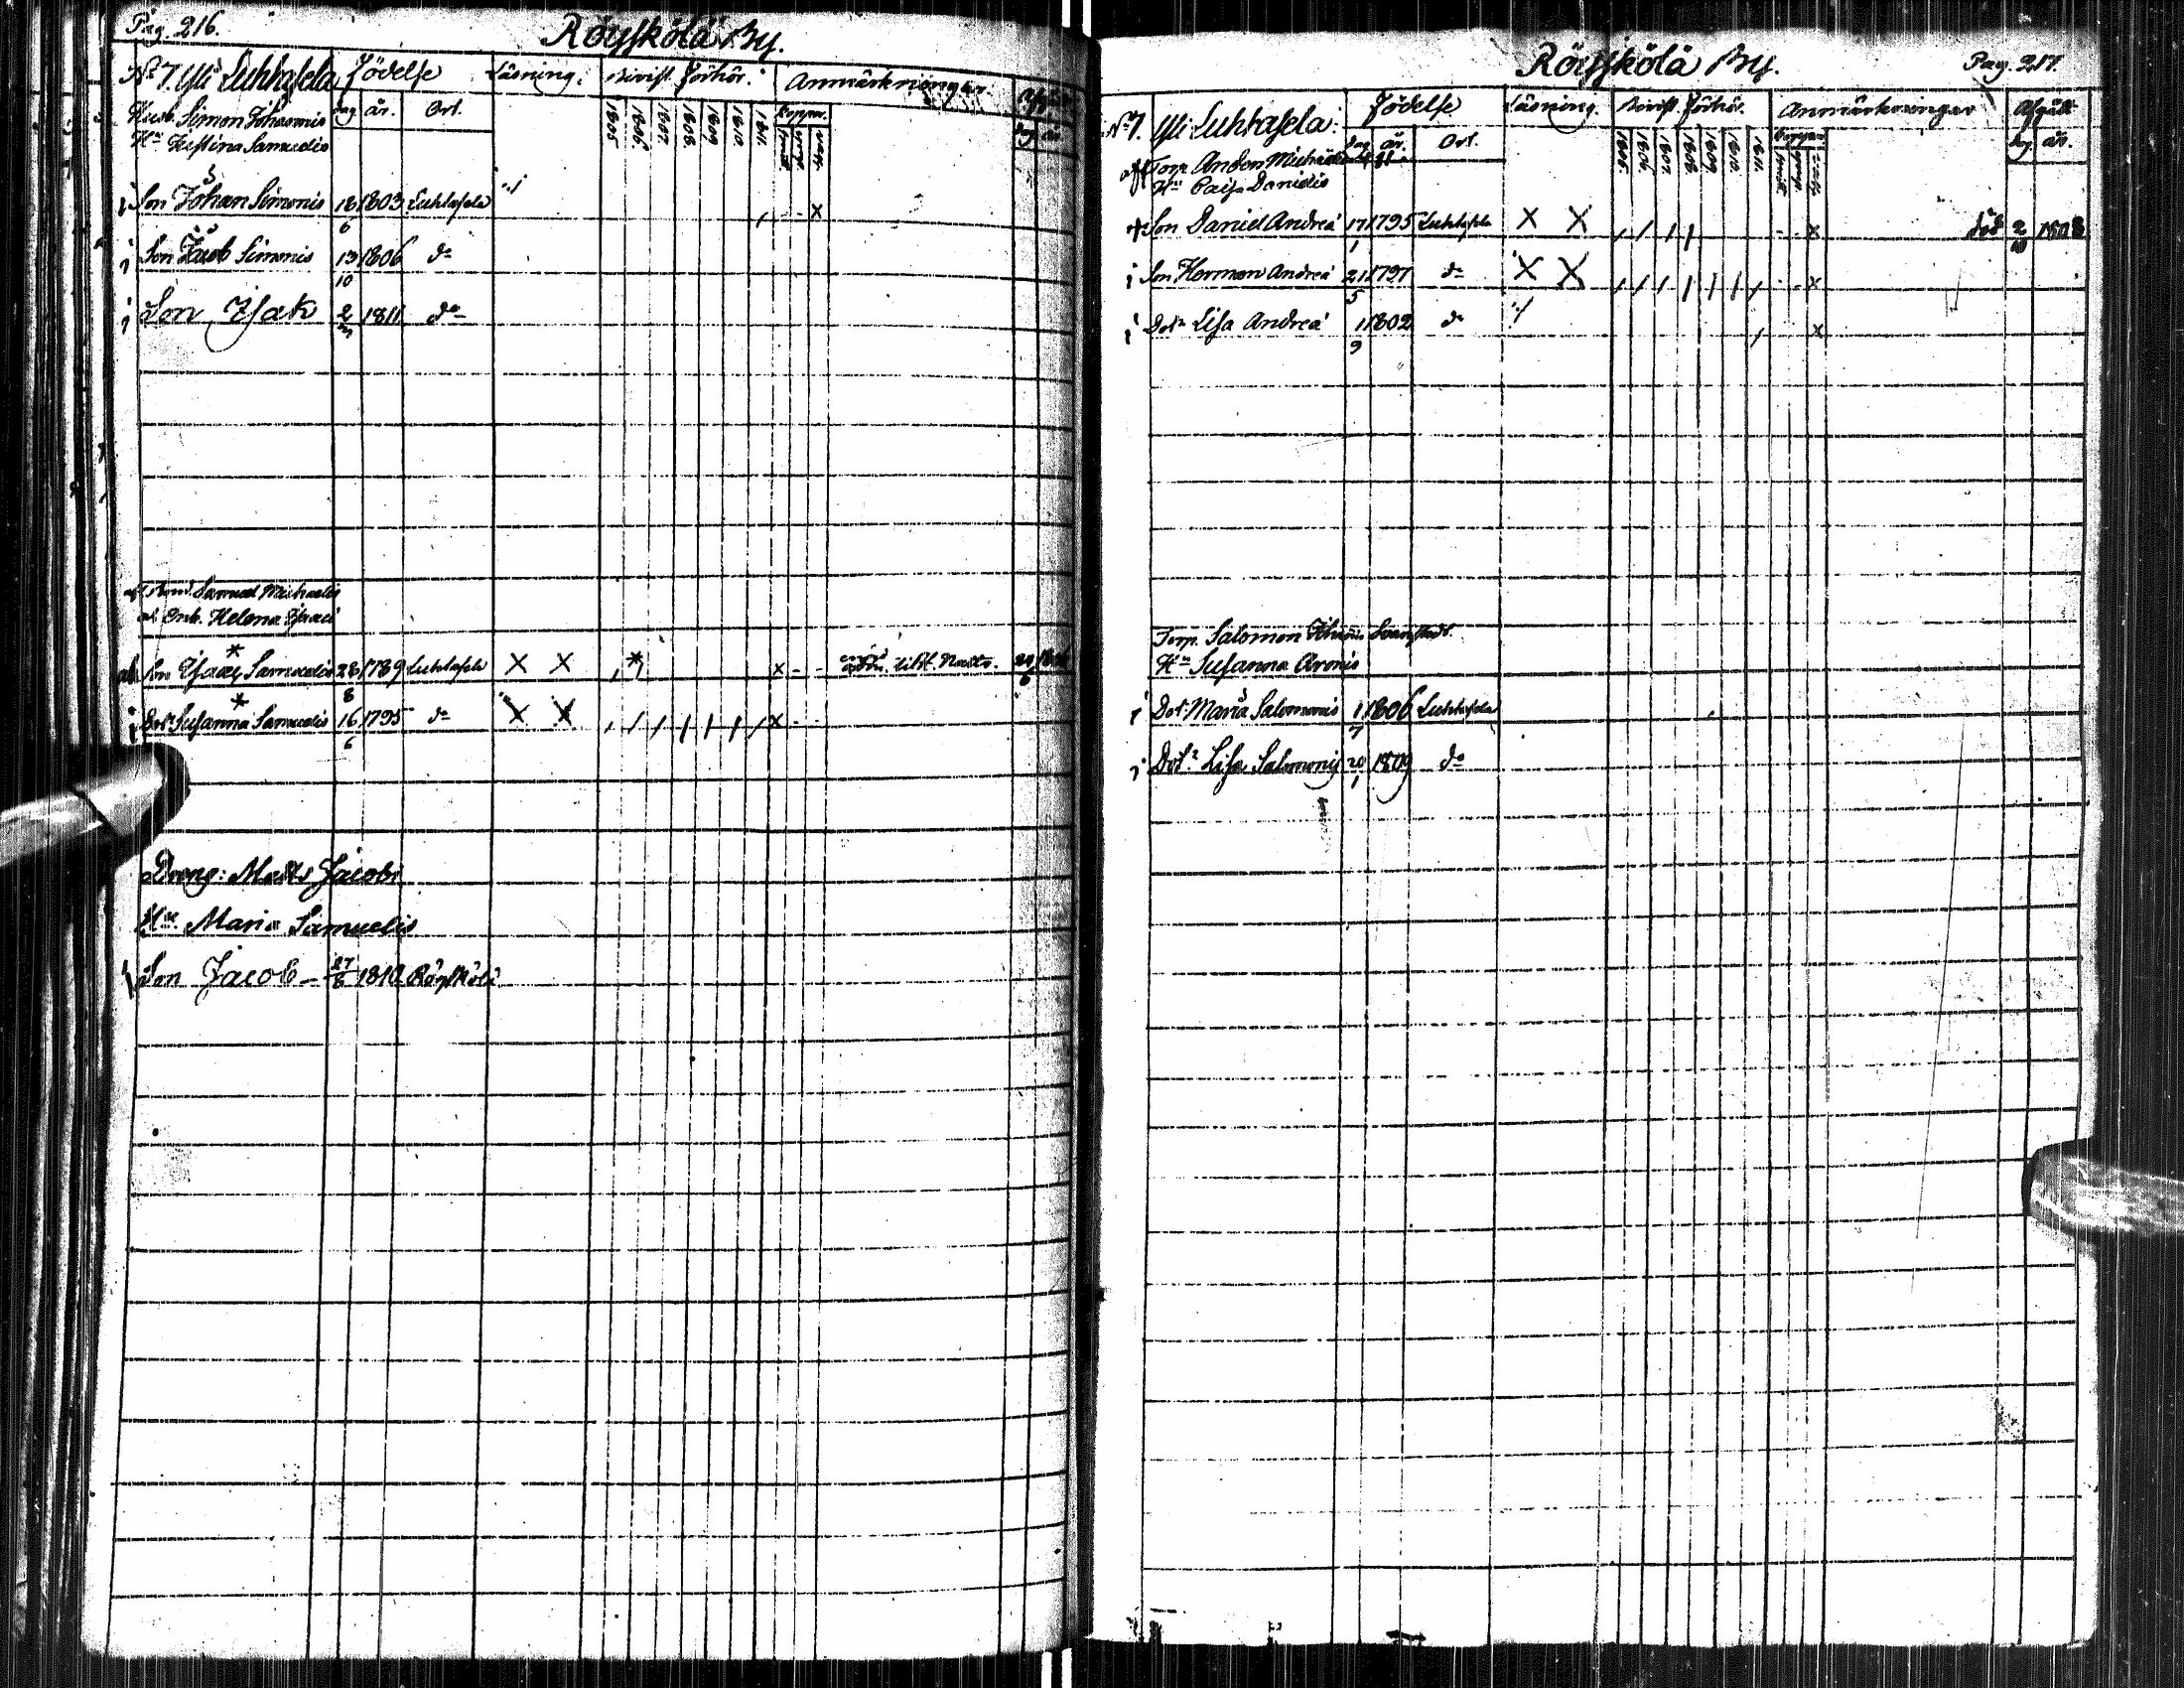 Pag. 216.
Röyskölä By.
No 7. Yli Luhtasela
Födelse
Läsning.
Christ. Förhör.
Anmärkningar.
Dag
år.
Ort.
1805
1806
1807
1808
1809
1810
1811
Koppor.
Husb. Simon Johannis
Hu Kristina Samuelis
i Son Johan Simonis 18/6 1803 Luhtasela x
i Son Jacob Simonis 13/10 1806 do
i Son Isak 2/3 1811 do
Samuel Michaelis
Enk. Helena Isaaci
Son Isaac Samuelis 28/8 1789 Luhtasela X X x - -
i Dotr Susanna Samuelis 16/6 1795 do X X x - -
Dreng: Matts Jacobi
Hu Maria Samuelis
Son Jacob - 27/6 1810 Röyskölä
Röyskölä By.
Pag. 217.
No 7. Yli Luhtasela.
Födelse
Läsning.
Christ. Förhör.
Anmärkningar
Afgått
Dag
år.
Ort.
1805.
1806.
1807
1808
1809
1810.
1811.
Koppor
dag
år.
Torp. Anders Michaelis
Hu Caisa Danielis
+ Son Daniel Andreæ 17/1 1795 Luhtasela X X - - x död 2/10 1808
i Son Herman Andreæ 21/5 1797 do X X - - x
i Dotr Lisa Andreæ 1/9 1802 do x
Torp. Salomon
Hu Susanna Aronis
i Dotr Maria Salomonis 1/7 1806 Luhtasela
i Dotr Lisa Salomonis 20/1 1809 do